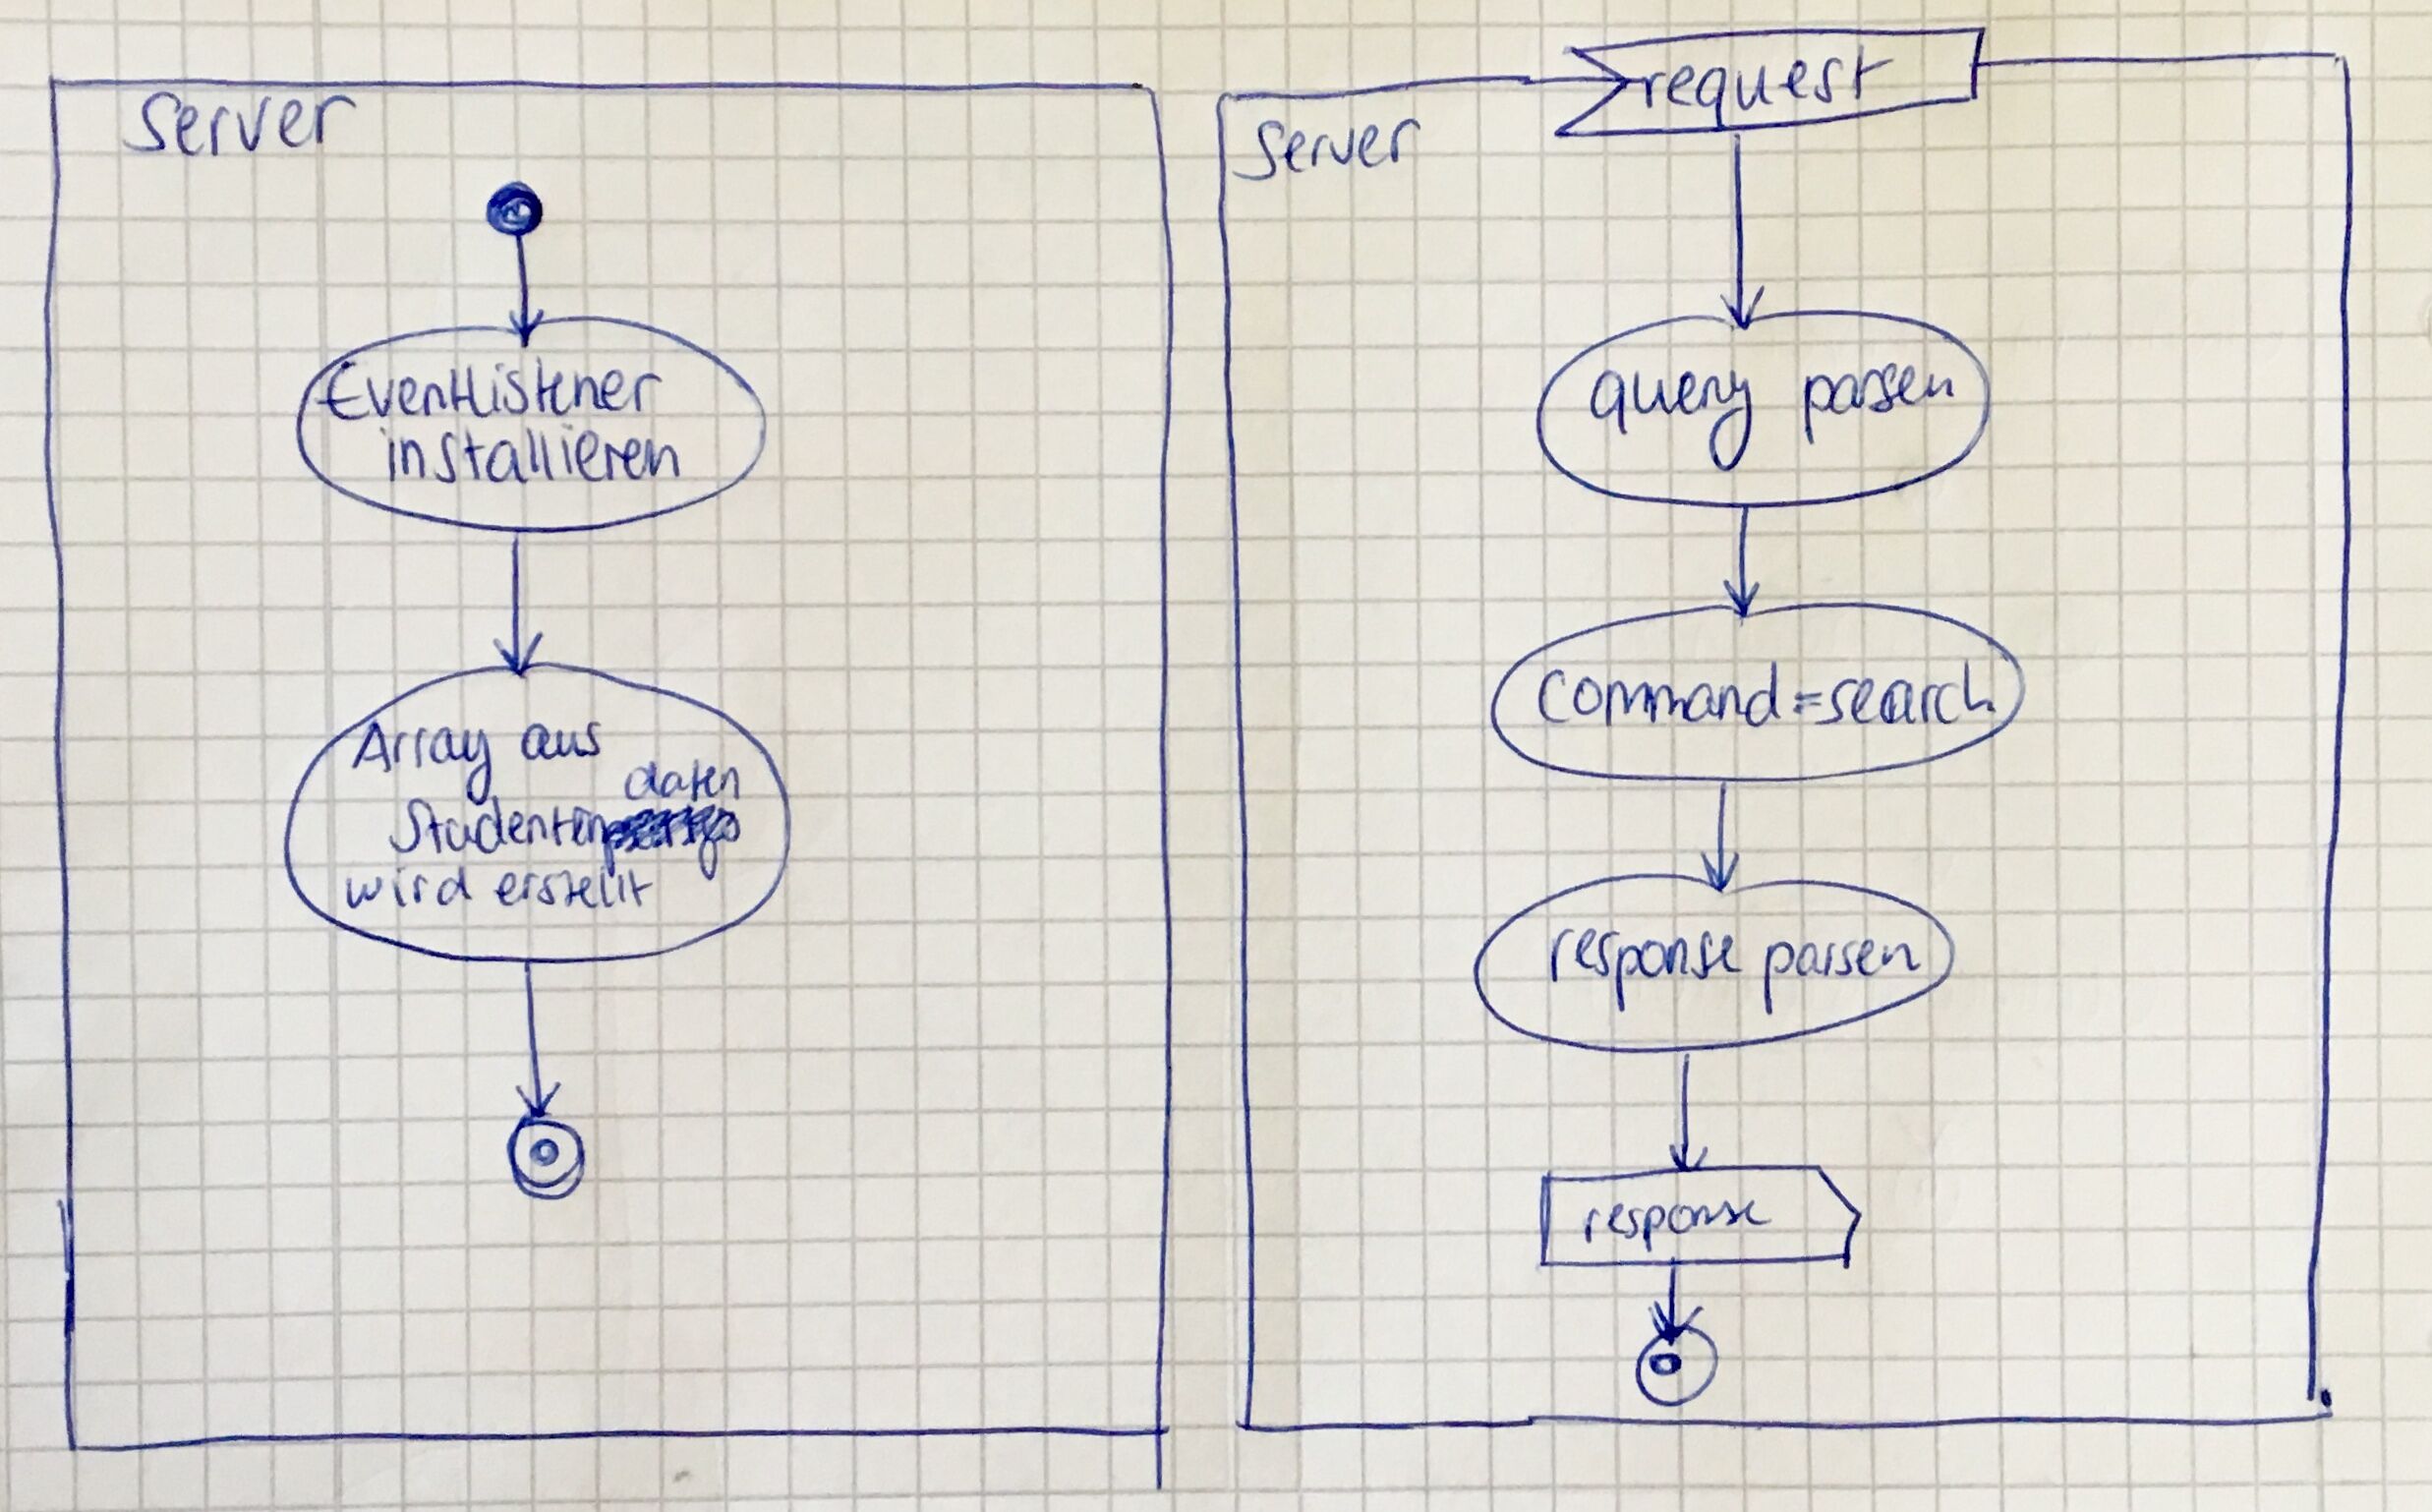 Server
Eventlistener
installieren
Array aus
daten
Studenten
wird erstellt
request
Server
query parsen
command=search
response parsen
response